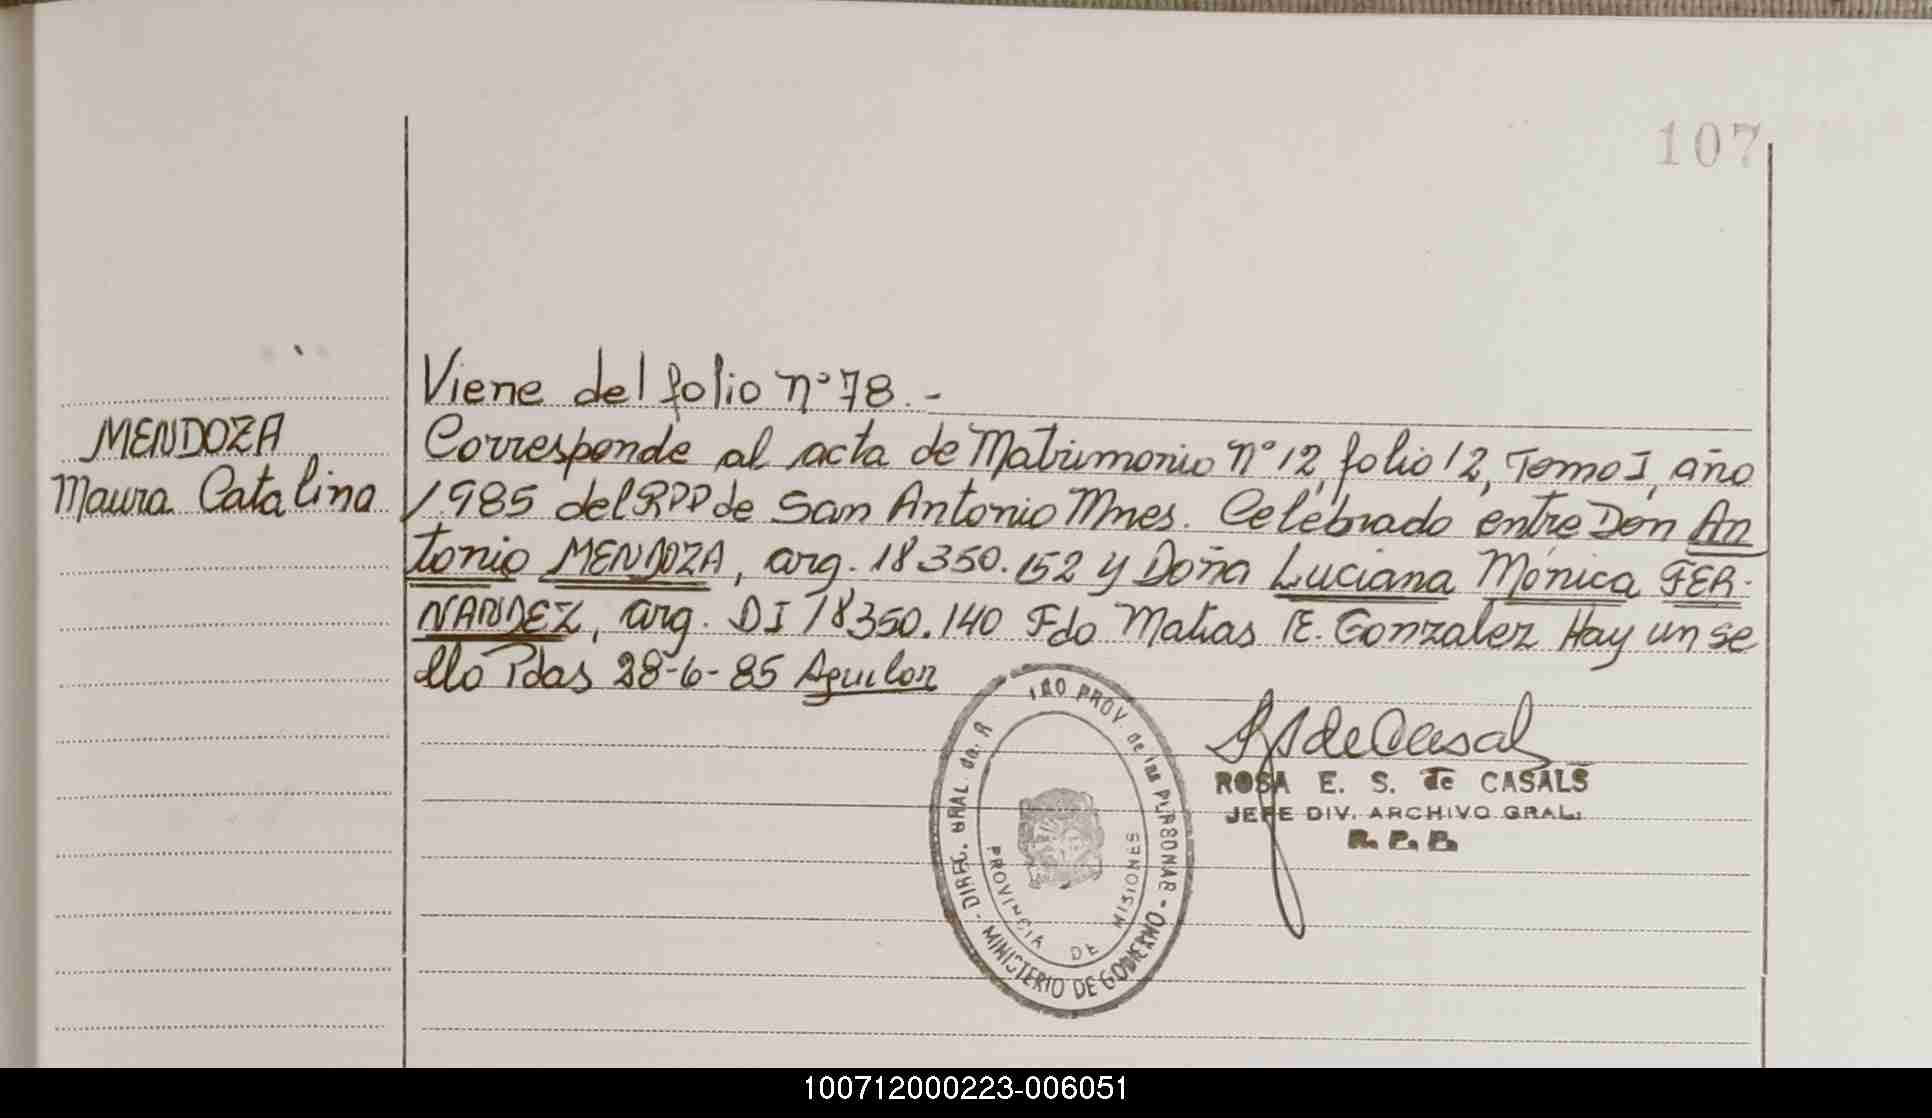 107
Viene del folio nº 78.-
MENDOZA
Maura Catalina
Corresponde al acta de Matrimonio nº 12, folio 12, Tomo I, año
1985 del RPP de San Antonio Mnes. Celebrado entre Don An
tonio MENDOZA, arg. 18350.152 y Doña Luciana Mónica FER-
NANDEZ, arg. DI 18350.140 Fdo Matias E. Gonzalez Hay un se
llo Pdas 28-6-85 Aguilar
DIREC. GRAL. de R PROV. de las PERSONAS - MINISTERIO DE GOBIERNO -
PROVINCIA DE MISIONES
ROSA E. S. de CASALS
JEFE DIV. ARCHIVO GRAL.
R. P. P.
100712000223-006051